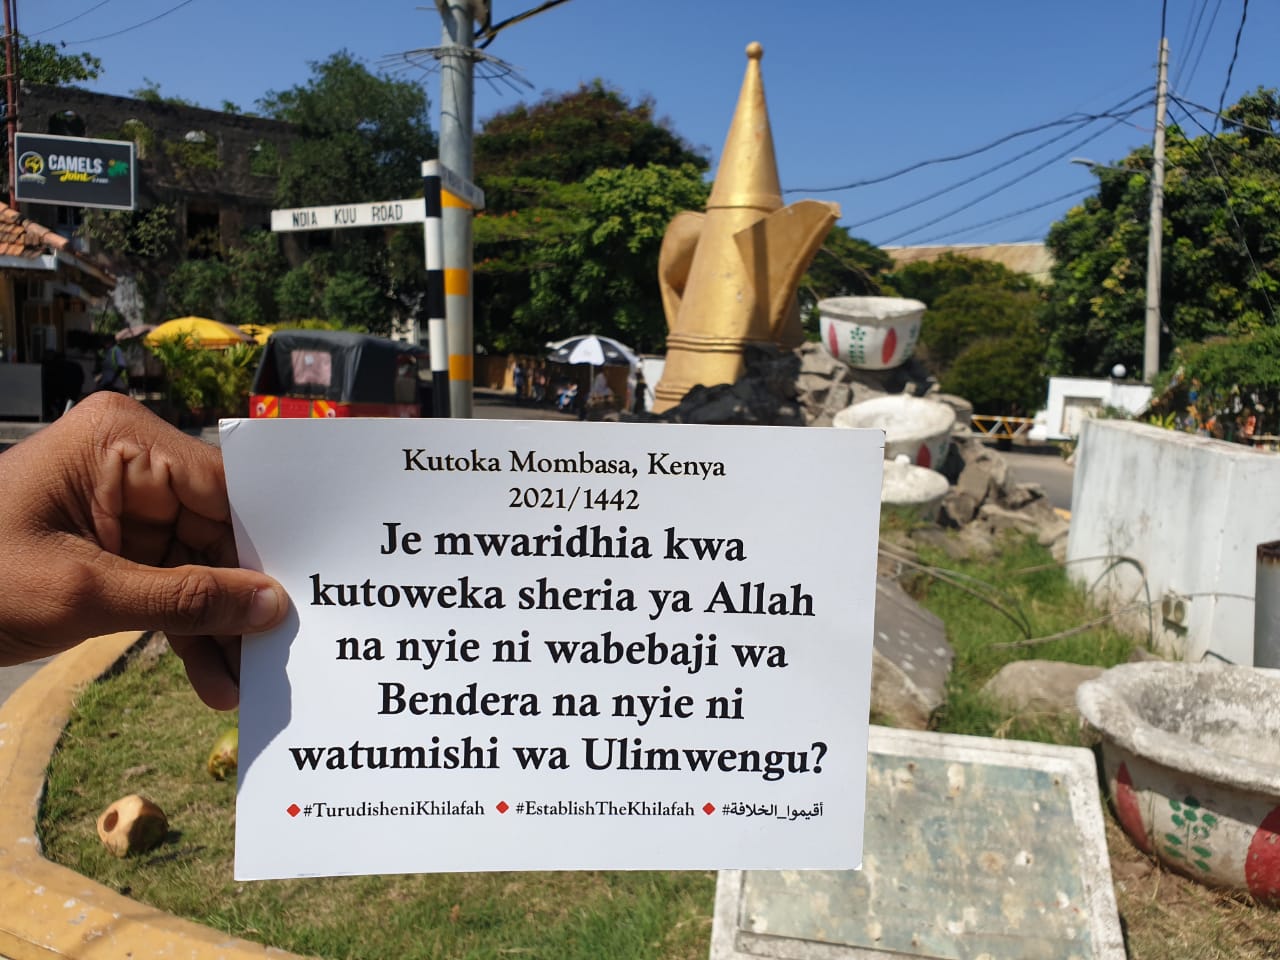 CAMELS
Joint
NDIA KUU ROAD
Kutoka Mombasa, Kenya
2021/1442
Je mwaridhia kwa
kutoweka sheria ya Allah
na nyie ni wabebaji wa
Bendera na nyie ni
watumishi wa Ulimwengu?
#TurudisheniKhilafah #EstablishTheKhilafah #أقيموا_الخلافة